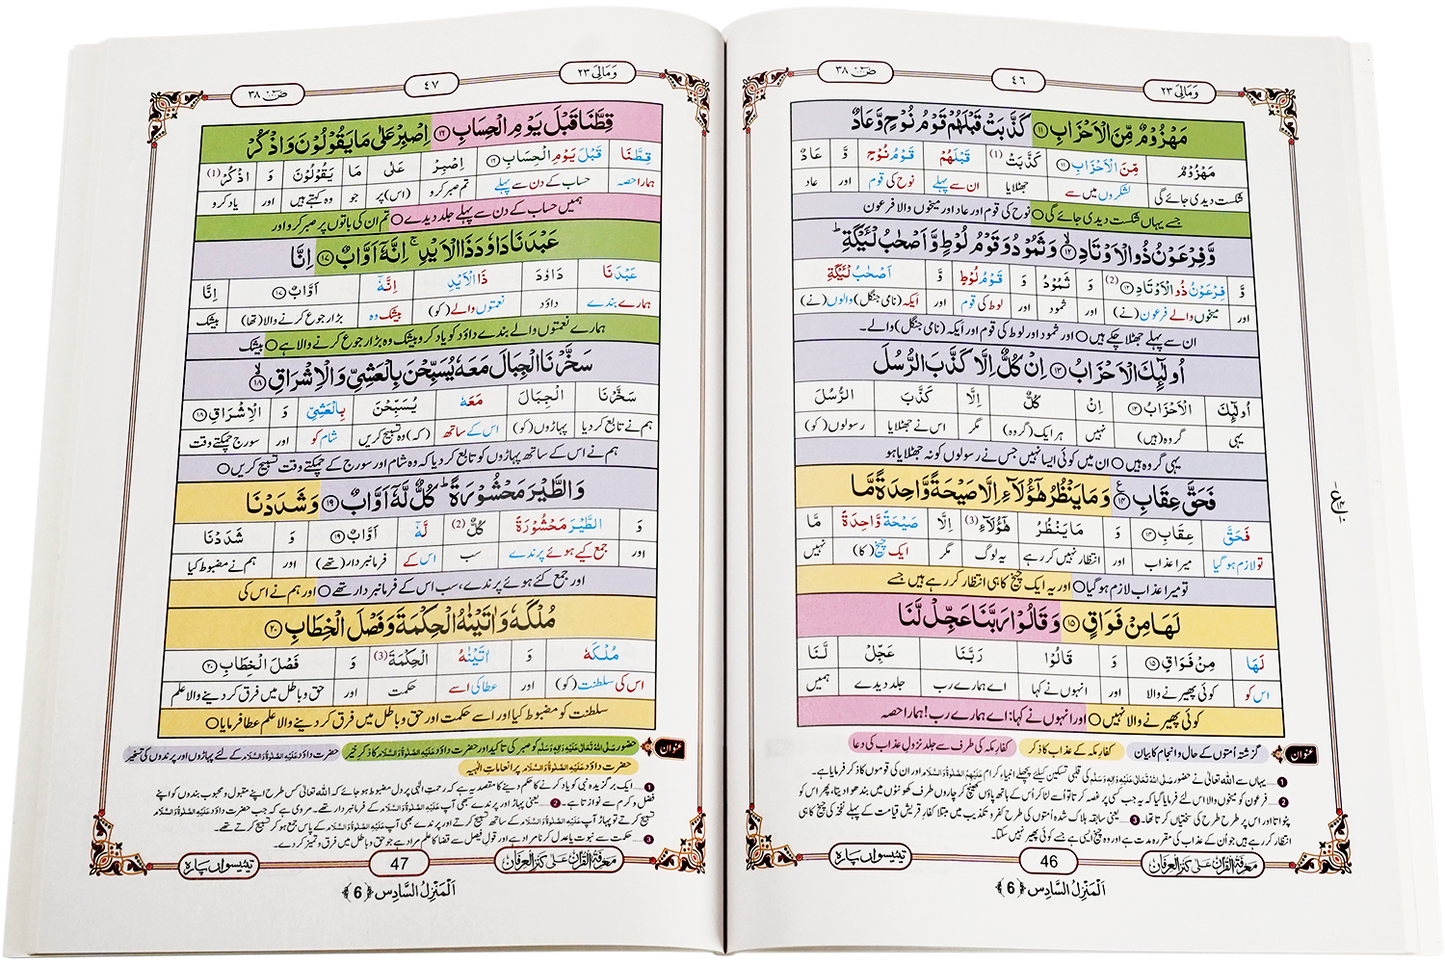 وَمَالِیَ ٢٣
٤٦
صٓ ٣٨
مَهْزُوْمٌ مِّنَ الْاَحْزَابِ ﴿١١﴾ كَذَّبَتْ قَبْلَهُمْ قَوْمُ نُوْحٍ وَّعَادٌ
مَهْزُوْمٌ مِّنَ الْاَحْزَابِ ﴿١١﴾ كَذَّبَتْ (1) قَبْلَهُمْ قَوْمُ نُوْحٍ وَّ عَادٌ
شکست دیدی جائے گی لشکروں میں سے جھٹلایا ان سے پہلے نوح کی قوم اور عاد
جسے یہاں شکست دیدی جائے گی ○ نوح کی قوم اور عاد اور میخوں والا فرعون
وَّفِرْعَوْنُ ذُو الْاَوْتَادِ ﴿١٢﴾ وَثَمُوْدُ وَقَوْمُ لُوْطٍ وَّاَصْحٰبُ لْـَٔیْكَةِ ؕ
وَّ فِرْعَوْنُ ذُو الْاَوْتَادِ ﴿١٢﴾ (2) وَ ثَمُوْدُ وَ قَوْمُ لُوْطٍ وَّ اَصْحٰبُ لْـَٔیْكَةِ
اور میخوں والے فرعون (نے) اور ثمود اور لوط کی قوم اور ایکہ (نامی جنگل) والوں (نے)
ان سے پہلے جھٹلا چکے ہیں ○ اور ثمود اور لوط کی قوم اور ایکہ (نامی جنگل) والے۔
اُولٰٓىِٕكَ الْاَحْزَابُ ﴿١٣﴾ اِنْ كُلٌّ اِلَّا كَذَّبَ الرُّسُلَ
اُولٰٓىِٕكَ الْاَحْزَابُ ﴿١٣﴾ اِنْ كُلٌّ اِلَّا كَذَّبَ الرُّسُلَ
یہی گروہ (ہیں) نہیں ہر ایک (گروہ) مگر اس نے جھٹلایا رسولوں (کو)
یہی گروہ ہیں ○ ان میں کوئی ایسا نہیں جس نے رسولوں کو نہ جھٹلایا ہو
فَحَقَّ عِقَابِ ﴿١٤﴾ وَمَا یَنْظُرُ هٰۤؤُلَآءِ اِلَّا صَیْحَةً وَّاحِدَةً مَّا
فَحَقَّ عِقَابِ ﴿١٤﴾ وَ مَا یَنْظُرُ هٰۤؤُلَآءِ (3) اِلَّا صَیْحَةً وَّاحِدَةً مَّا
تو لازم ہو گیا میرا عذاب اور انتظار نہیں کر رہے یہ لوگ مگر ایک چیخ (کا) نہیں
تو میرا عذاب لازم ہو گیا ○ اور یہ ایک چیخ کا ہی انتظار کر رہے ہیں جسے
لَهَا مِنْ فَوَاقٍ ﴿١٥﴾ وَقَالُوْا رَبَّنَا عَجِّلْ لَّنَا
لَهَا مِنْ فَوَاقٍ ﴿١٥﴾ وَ قَالُوْا رَبَّنَا عَجِّلْ لَّنَا
اس کو کوئی پھیرنے والا اور انہوں نے کہا اے ہمارے رب جلد دیدے ہمیں
کوئی پھیرنے والا نہیں ○ اور انہوں نے کہا: اے ہمارے رب! ہمارا حصہ
عنوان گزشتہ اُمتوں کے حال و انجام کا بیان کفارِ مکہ کے عذاب کا ذکر کفارِ مکہ کی طرف سے جلد نزولِ عذاب کی دعا
1 ...یہاں سے اللہ تعالیٰ نے حضور صَلَّی اللہُ تَعَالٰی عَلَیْہِ وَاٰلِہٖ وَسَلَّم کی قلبی تسکین کیلئے پچھلے انبیاءِ کرام عَلَیْہِمُ الصَّلٰوۃُ وَالسَّلَام اور ان کی قوموں کا ذکر فرمایا ہے۔
2 ...فرعون کو میخوں والا اس لئے فرمایا گیا کہ یہ جب کسی پر غصہ کرتا تو اُسے لٹا کر اُس کے ہاتھ پاؤں کھینچ کر چاروں طرف کھونٹوں میں بندھوا دیتا، پھر اس کو
پٹواتا اور اس پر طرح طرح کی سختیاں کرتا تھا۔ 3 ...یعنی سابقہ ہلاک شدہ اُمتوں کی طرح کفر و تکذیب میں مبتلا کفارِ قریش قیامت کے پہلے نفخہ کی چیخ کا ہی
انتظار کر رہے ہیں جو اُن کے عذاب کی مقررہ مدت ہے اور وہ چیخ ایسی ہے جسے کوئی پھیر نہیں سکتا۔
معرفۃ القرآن علیٰ کنز العرفان
46
تیئیسواں پارہ
اَلْمَنْزِلُ السَّادِس ﴿6﴾
وَمَالِیَ ٢٣
٤٧
صٓ ٣٨
قِطَّنَا قَبْلَ یَوْمِ الْحِسَابِ ﴿١٦﴾ اِصْبِرْ عَلٰى مَا یَقُوْلُوْنَ وَاذْكُرْ
قِطَّنَا قَبْلَ یَوْمِ الْحِسَابِ ﴿١٦﴾ اِصْبِرْ عَلٰى مَا یَقُوْلُوْنَ وَ اذْكُرْ (1)
ہمارا حصہ حساب کے دن سے پہلے تم صبر کرو (اس) پر جو وہ کہتے ہیں اور یاد کرو
ہمیں حساب کے دن سے پہلے جلد دیدے ○ تم ان کی باتوں پر صبر کرو اور
عَبْدَنَا دَاوٗدَ ذَا الْاَیْدِ ۚ اِنَّهٗۤ اَوَّابٌ ﴿١٧﴾ اِنَّا
عَبْدَنَا دَاوٗدَ ذَا الْاَیْدِ اِنَّهٗۤ اَوَّابٌ ﴿١٧﴾ اِنَّا
ہمارے بندے داؤد نعمتوں والے (کو) بیشک وہ بڑا رجوع کرنے والا (تھا) بیشک
ہمارے نعمتوں والے بندے داؤد کو یاد کرو بیشک وہ بڑا رجوع کرنے والا ہے ○ بیشک
سَخَّرْنَا الْجِبَالَ مَعَهٗ یُسَبِّحْنَ بِالْعَشِیِّ وَالْاِشْرَاقِ ﴿١٨﴾
سَخَّرْنَا الْجِبَالَ مَعَهٗ یُسَبِّحْنَ بِالْعَشِیِّ وَ الْاِشْرَاقِ ﴿١٨﴾
ہم نے تابع کر دیا پہاڑوں (کو) اس کے ساتھ (کہ) وہ تسبیح کریں شام کو اور سورج چمکتے وقت
ہم نے اس کے ساتھ پہاڑوں کو تابع کر دیا کہ وہ شام اور سورج کے چمکتے وقت تسبیح کریں ○
وَالطَّیْرَ مَحْشُوْرَةً ؕ كُلٌّ لَّهٗۤ اَوَّابٌ ﴿١٩﴾ وَشَدَدْنَا
وَ الطَّیْرَ مَحْشُوْرَةً كُلٌّ (2) لَّهٗۤ اَوَّابٌ ﴿١٩﴾ وَ شَدَدْنَا
اور جمع کیے ہوئے پرندے سب اس کے فرمانبردار (تھے) اور ہم نے مضبوط کیا
اور جمع کئے ہوئے پرندے، سب اس کے فرمانبردار تھے ○ اور ہم نے اس کی
مُلْكَهٗ وَاٰتَیْنٰهُ الْحِكْمَةَ وَفَصْلَ الْخِطَابِ ﴿٢٠﴾
مُلْكَهٗ وَ اٰتَیْنٰهُ الْحِكْمَةَ (3) وَ فَصْلَ الْخِطَابِ ﴿٢٠﴾
اس کی سلطنت (کو) اور عطا کی اسے حکمت اور حق و باطل میں فرق کر دینے والا علم
سلطنت کو مضبوط کیا اور اسے حکمت اور حق و باطل میں فرق کر دینے والا علم عطا فرمایا ○
عنوان حضور صَلَّی اللہُ تَعَالٰی عَلَیْہِ وَاٰلِہٖ وَسَلَّم کو صبر کی تاکید اور حضرت داؤد عَلَیْہِ الصَّلٰوۃُ وَالسَّلَام کا ذکرِ خیر حضرت داؤد عَلَیْہِ الصَّلٰوۃُ وَالسَّلَام کے لئے پہاڑوں اور پرندوں کی تسخیر
حضرت داؤد عَلَیْہِ الصَّلٰوۃُ وَالسَّلَام پر انعاماتِ الٰہیہ
1 ...ایک برگزیدہ نبی کو یاد کرنے کا حکم دینے کا مقصد یہ ہے کہ رحمتِ الٰہی پر دل مضبوط ہو جائے کہ اللہ تعالیٰ کس طرح اپنے مقبول و محبوب بندوں کو اپنے
فضل و کرم سے نوازتا ہے۔ 2 ...یعنی پہاڑ اور پرندے بھی آپ عَلَیْہِ الصَّلٰوۃُ وَالسَّلَام کے فرمانبردار تھے۔ مروی ہے کہ جب حضرت داؤد عَلَیْہِ الصَّلٰوۃُ وَالسَّلَام
تسبیح کرتے تو پہاڑ آپ عَلَیْہِ الصَّلٰوۃُ وَالسَّلَام کے ساتھ تسبیح کرتے اور پرندے بھی آپ عَلَیْہِ الصَّلٰوۃُ وَالسَّلَام کے پاس جمع ہو کر تسبیح کرتے تھے۔
3 ...حکمت سے نبوت یا عدل کرنا مراد ہے اور قولِ فیصل سے قضا کا علم مراد ہے جو حق و باطل میں فرق و تمیز کر دے۔
معرفۃ القرآن علیٰ کنز العرفان
47
تیئیسواں پارہ
اَلْمَنْزِلُ السَّادِس ﴿6﴾